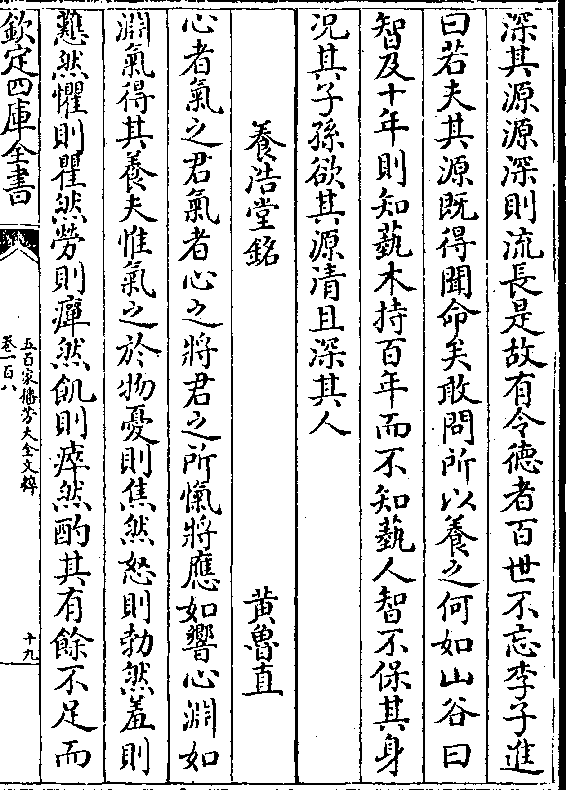 深其源源深則流長是故有令德者百世不忘李子進
曰若夫其源既得聞命矣敢問所以養之何如山谷曰
智及十年則知蓺木持百年而不知蓺人智不保其身
況其子孫欲其源清且深其人
養浩堂銘　黄魯直
心者氣之君氣者心之將君之所愾將應如響心淵如
淵氣得其養夫惟氣之於物憂則焦然怒則勃然羞則
戁然懼則瞿然勞則癉然飢則瘁然酌其有餘不足而
欽定四庫全書
五百家播芳大全文粹
卷一百八
十九